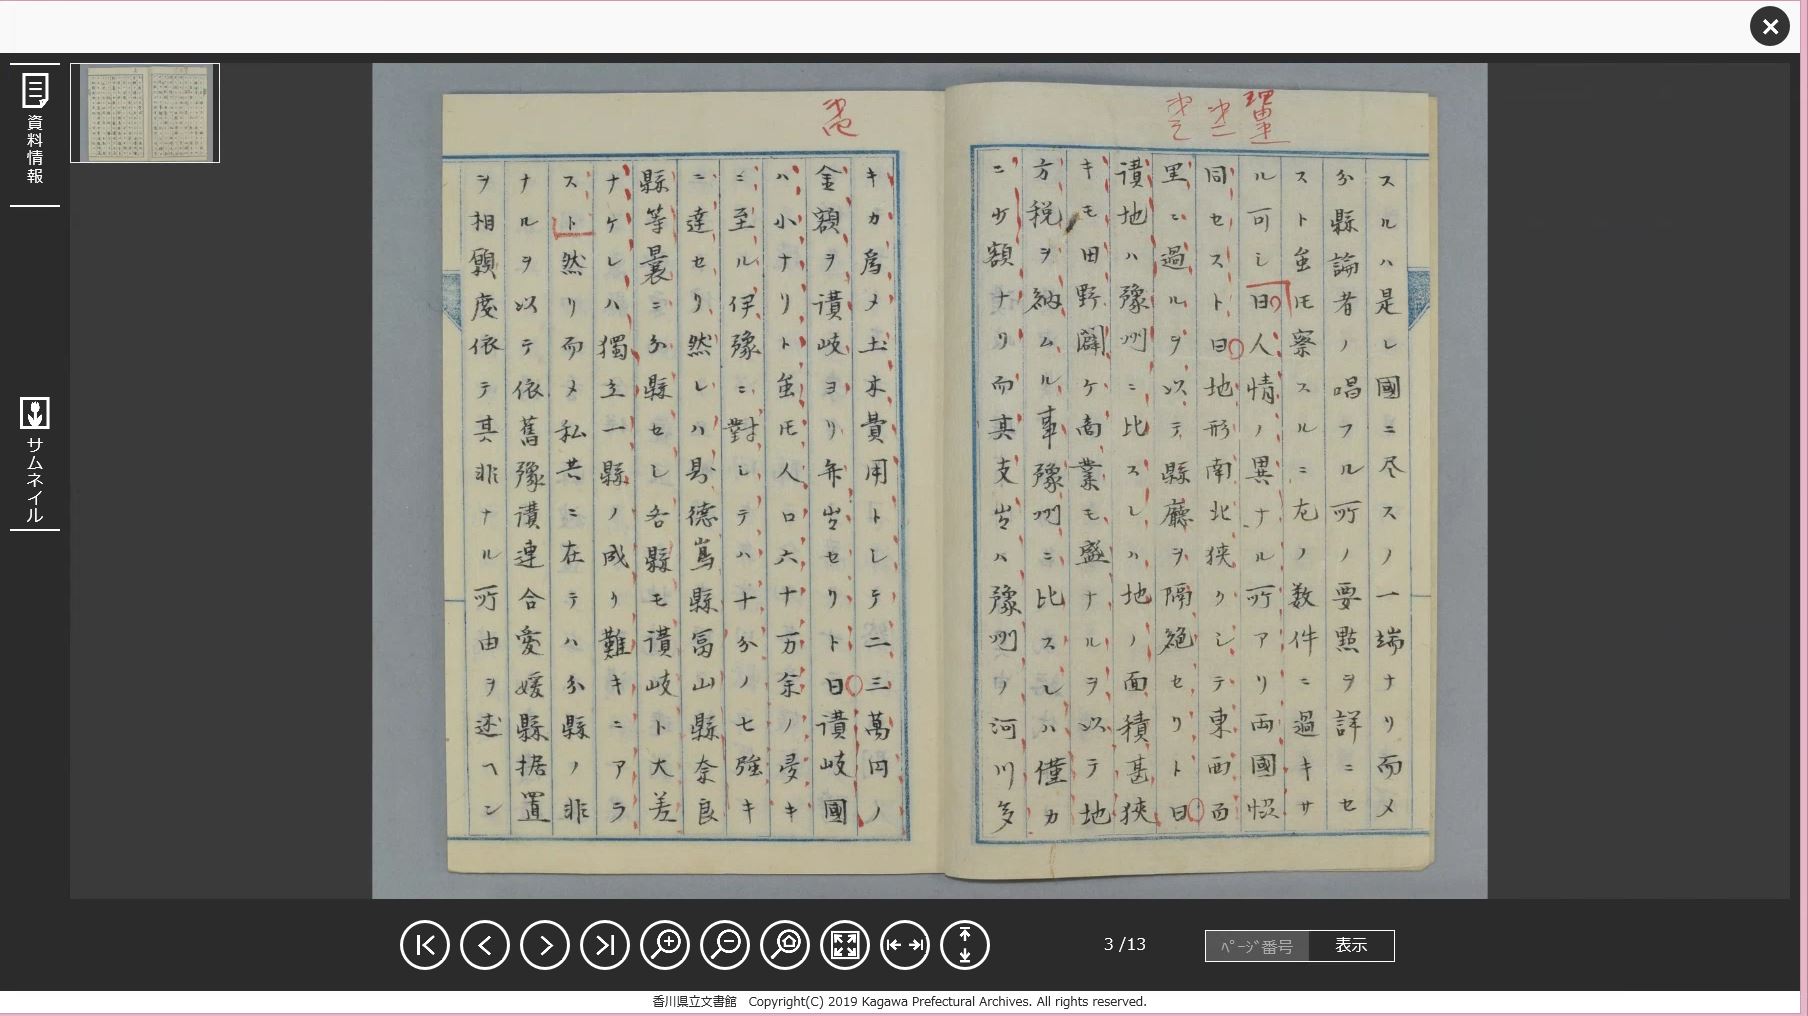 資料情報
サムネイル
スルハ是レ國ニ尽スノ一端ナリ而メ
分縣論者ノ唱フル所ノ要點ヲ詳ニセ
スト虽𪜈察スルニ左ノ数件ニ過キサ
ル可シ曰人情ノ異ナル所アリ両國
同セスト曰地形南北狭クシテ東西
里ニ過ルヲ以テ縣廳ヲ隔絶セリト曰
讃地ハ豫州ニ比スレハ地ノ面積甚狭
キモ田野闢ケ商業モ盛ナルヲ以テ地
方税ヲ納ムル事豫州ニ比スレハ僅カ
ニ少額ナリ而其支出ハ豫州ノ河川多
キカ為メ土木費用トシテ二三萬円ノ
金額ヲ讃岐ヨリ弁出セリト曰讃岐國
ハ小ナリト虽𪜈人口六十万余ノ夛キ
ニ至ル伊豫ニ對シテハ十分ノ七強キ
ニ達セリ然レハ具德嶌縣冨山縣奈良
縣等曩ニ分縣セし各縣モ讃岐ト大差
ナケレハ獨立一縣ノ成リ難キニアラ
スト然リ而メ私共ニ在テハ分縣ノ非
ナルヲ以テ依舊豫讃連合愛媛縣据置
ヲ相願度依テ其非ナル所由ヲ述ヘン
3 /13
ﾍﾟｰｼﾞ番号
表示
香川県立文書館 Copyright(C) 2019 Kagawa Prefectural Archives. All rights reserved.